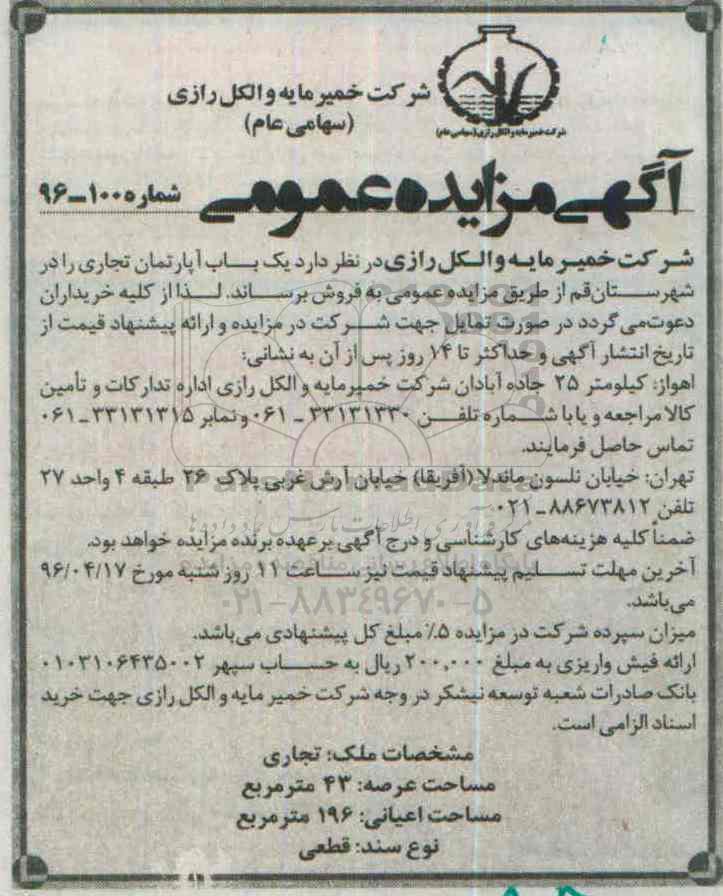 شرکت خمیر مایه و الکل رازی
(سهامی عام)
شرکت خمیر مایه و الکل رازی (سهامی عام)
آگهی مزایده عمومی
شماره ۱۰۰-۹۶
شرکت خمیر مایه و الکل رازی در نظر دارد یک باب آپارتمان تجاری را در
شهرستان قم از طریق مزایده عمومی به فروش برساند. لذا از کلیه خریداران
دعوت می گردد در صورت تمایل جهت شرکت در مزایده و ارائه پیشنهاد قیمت از
تاریخ انتشار آگهی و حداکثر تا ۱۴ روز پس از آن به نشانی:
اهواز: کیلومتر ۲۵ جاده آبادان شرکت خمیرمایه و الکل رازی اداره تدارکات و تأمین
کالا مراجعه و یا با شماره تلفن ۳۳۱۳۱۳۳۰ - ۰۶۱ و نمابر ۳۳۱۳۱۳۱۵ - ۰۶۱
تماس حاصل فرمایند.
تهران: خیابان نلسون ماندلا (آفریقا) خیابان آرش غربی پلاک ۲۶ طبقه ۴ واحد ۲۷
تلفن ۸۸۶۷۳۸۱۲ - ۰۲۱
ضمناً کلیه هزینه‌های کارشناسی و درج آگهی بر عهده برنده مزایده خواهد بود.
آخرین مهلت تسلیم پیشنهاد قیمت نیز ساعت ۱۱ روز شنبه مورخ ۹۶/۰۴/۱۷
می‌باشد.
۰۲۱-۸۸۳۴۹۶۷۰-۵
میزان سپرده شرکت در مزایده ۵٪ مبلغ کل پیشنهادی می‌باشد.
ارائه فیش واریزی به مبلغ ۲۰۰,۰۰۰ ریال به حساب سپهر ۰۱۰۳۱۰۶۴۳۵۰۰۲
بانک صادرات شعبه توسعه نیشکر در وجه شرکت خمیر مایه و الکل رازی جهت خرید
اسناد الزامی است.
مشخصات ملک: تجاری
مساحت عرصه: ۴۳ مترمربع
مساحت اعیانی: ۱۹۶ مترمربع
نوع سند: قطعی